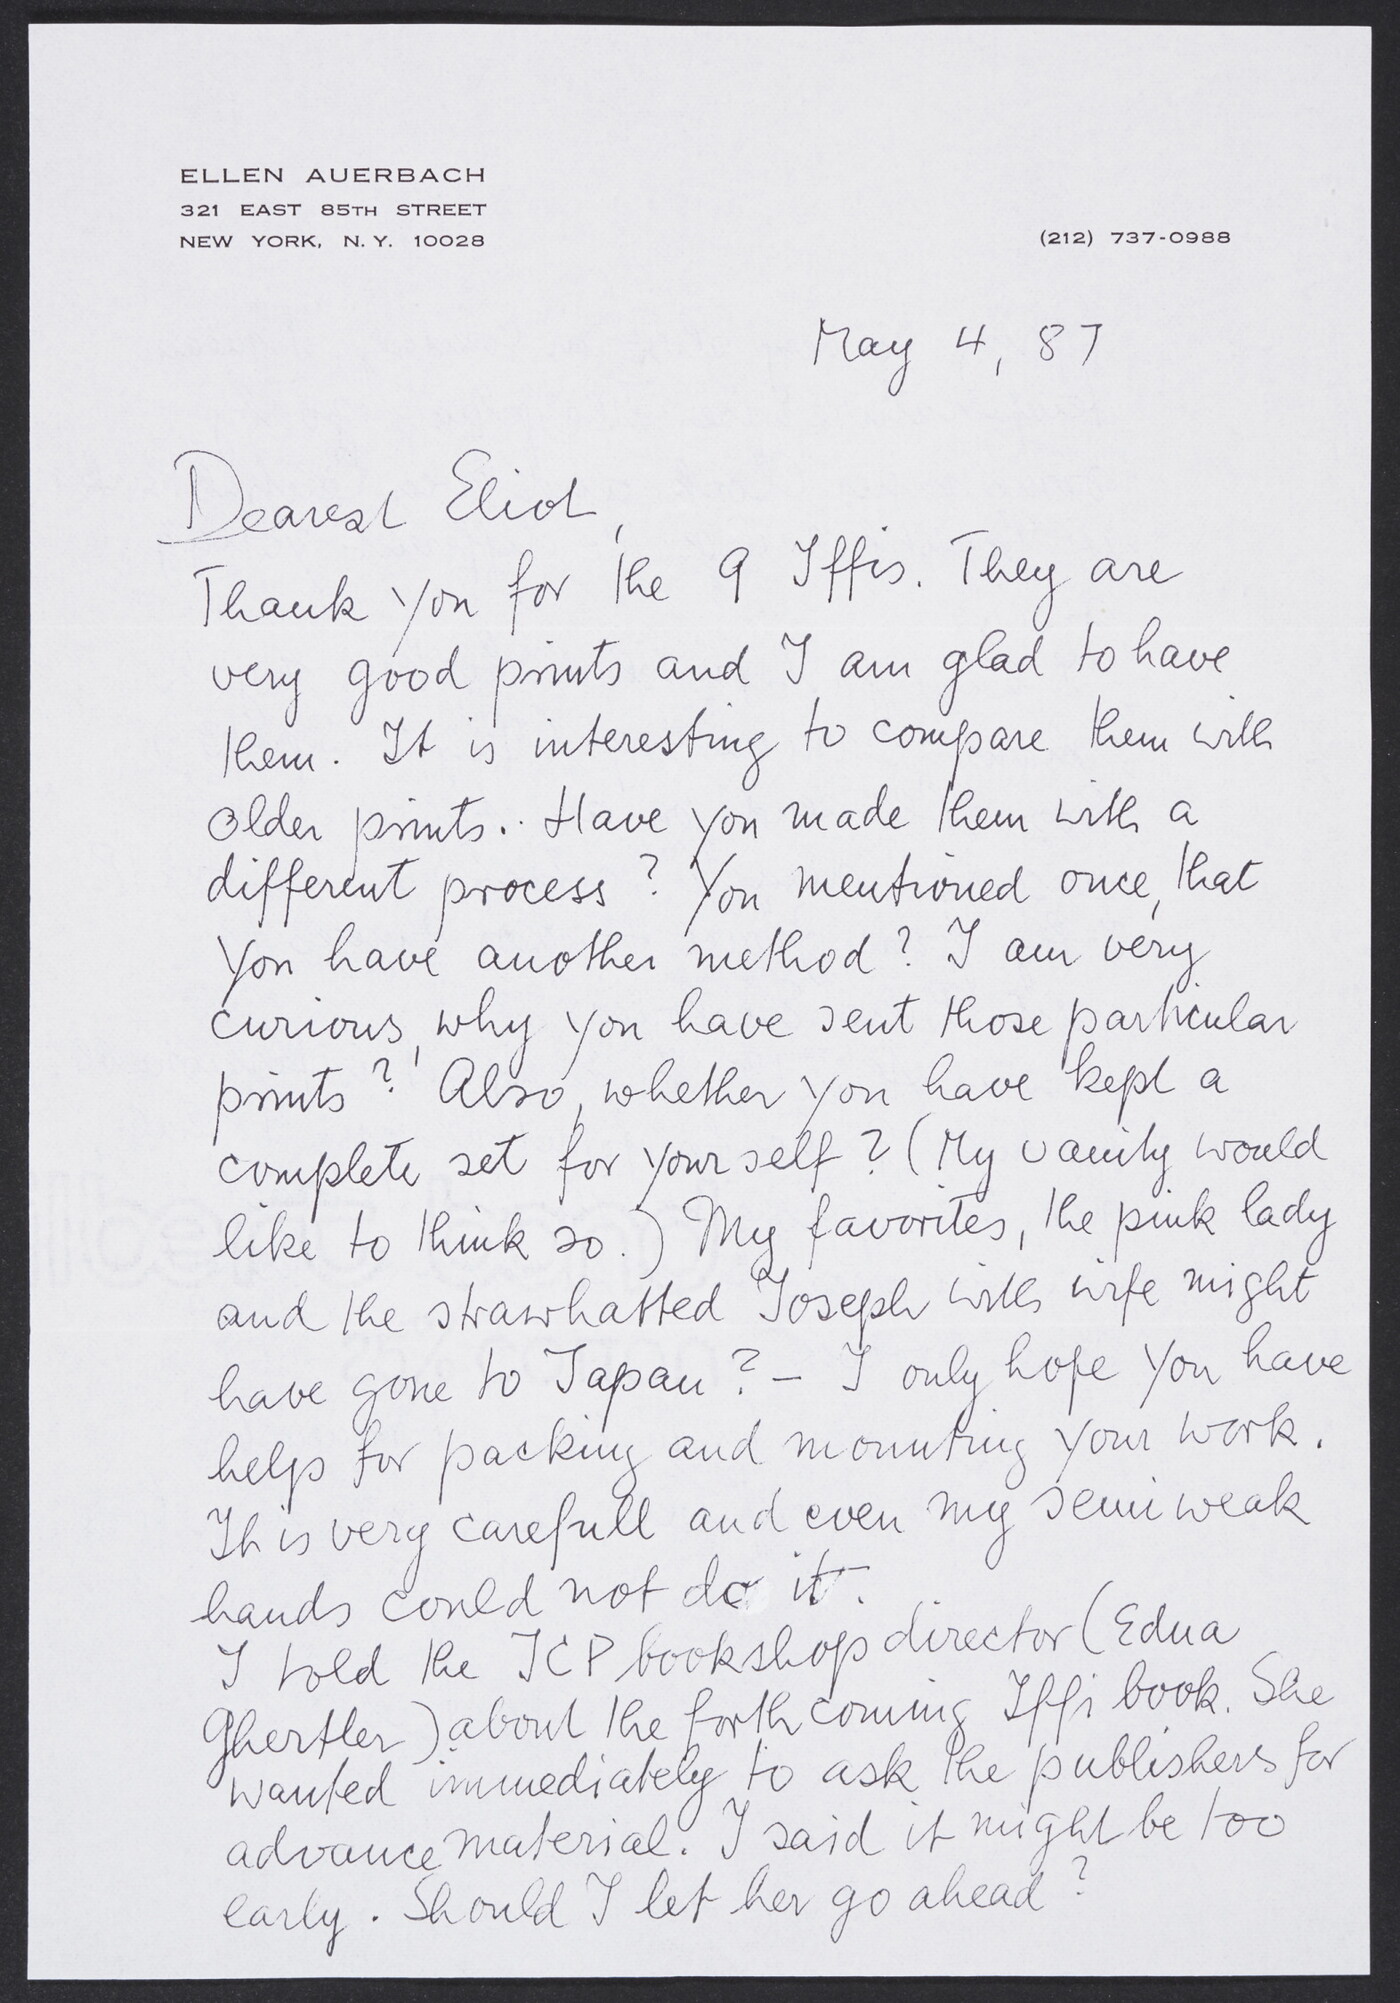 ELLEN AUERBACH
321 EAST 85TH STREET
NEW YORK, N.Y. 10028
(212) 737-0988
May 4, 87
Dearest Eliot,
Thank you for the 9 Iffis. They are
very good prints and I am glad to have
them. It is interesting to compare them with
older prints.. Have you made them with a
different process? You mentioned once, that
you have another method? I am very
curious, why you have sent those particular
prints? Also, whether you have kept a
complete set for yourself? (My vanity would
like to think so.) My favorites, the pink lady
and the strawhatted Joseph with wife might
have gone to Japan? – I only hope you have
help for packing and mounting your work.
It is very carefull and even my semiweak
hands could not do it.
I told the ICP bookshop director (Edna
Ghertler) about the forthcoming Iffi book. She
wanted immediately to ask the publishers for
advance material. I said it might be too
early. Should I let her go ahead?